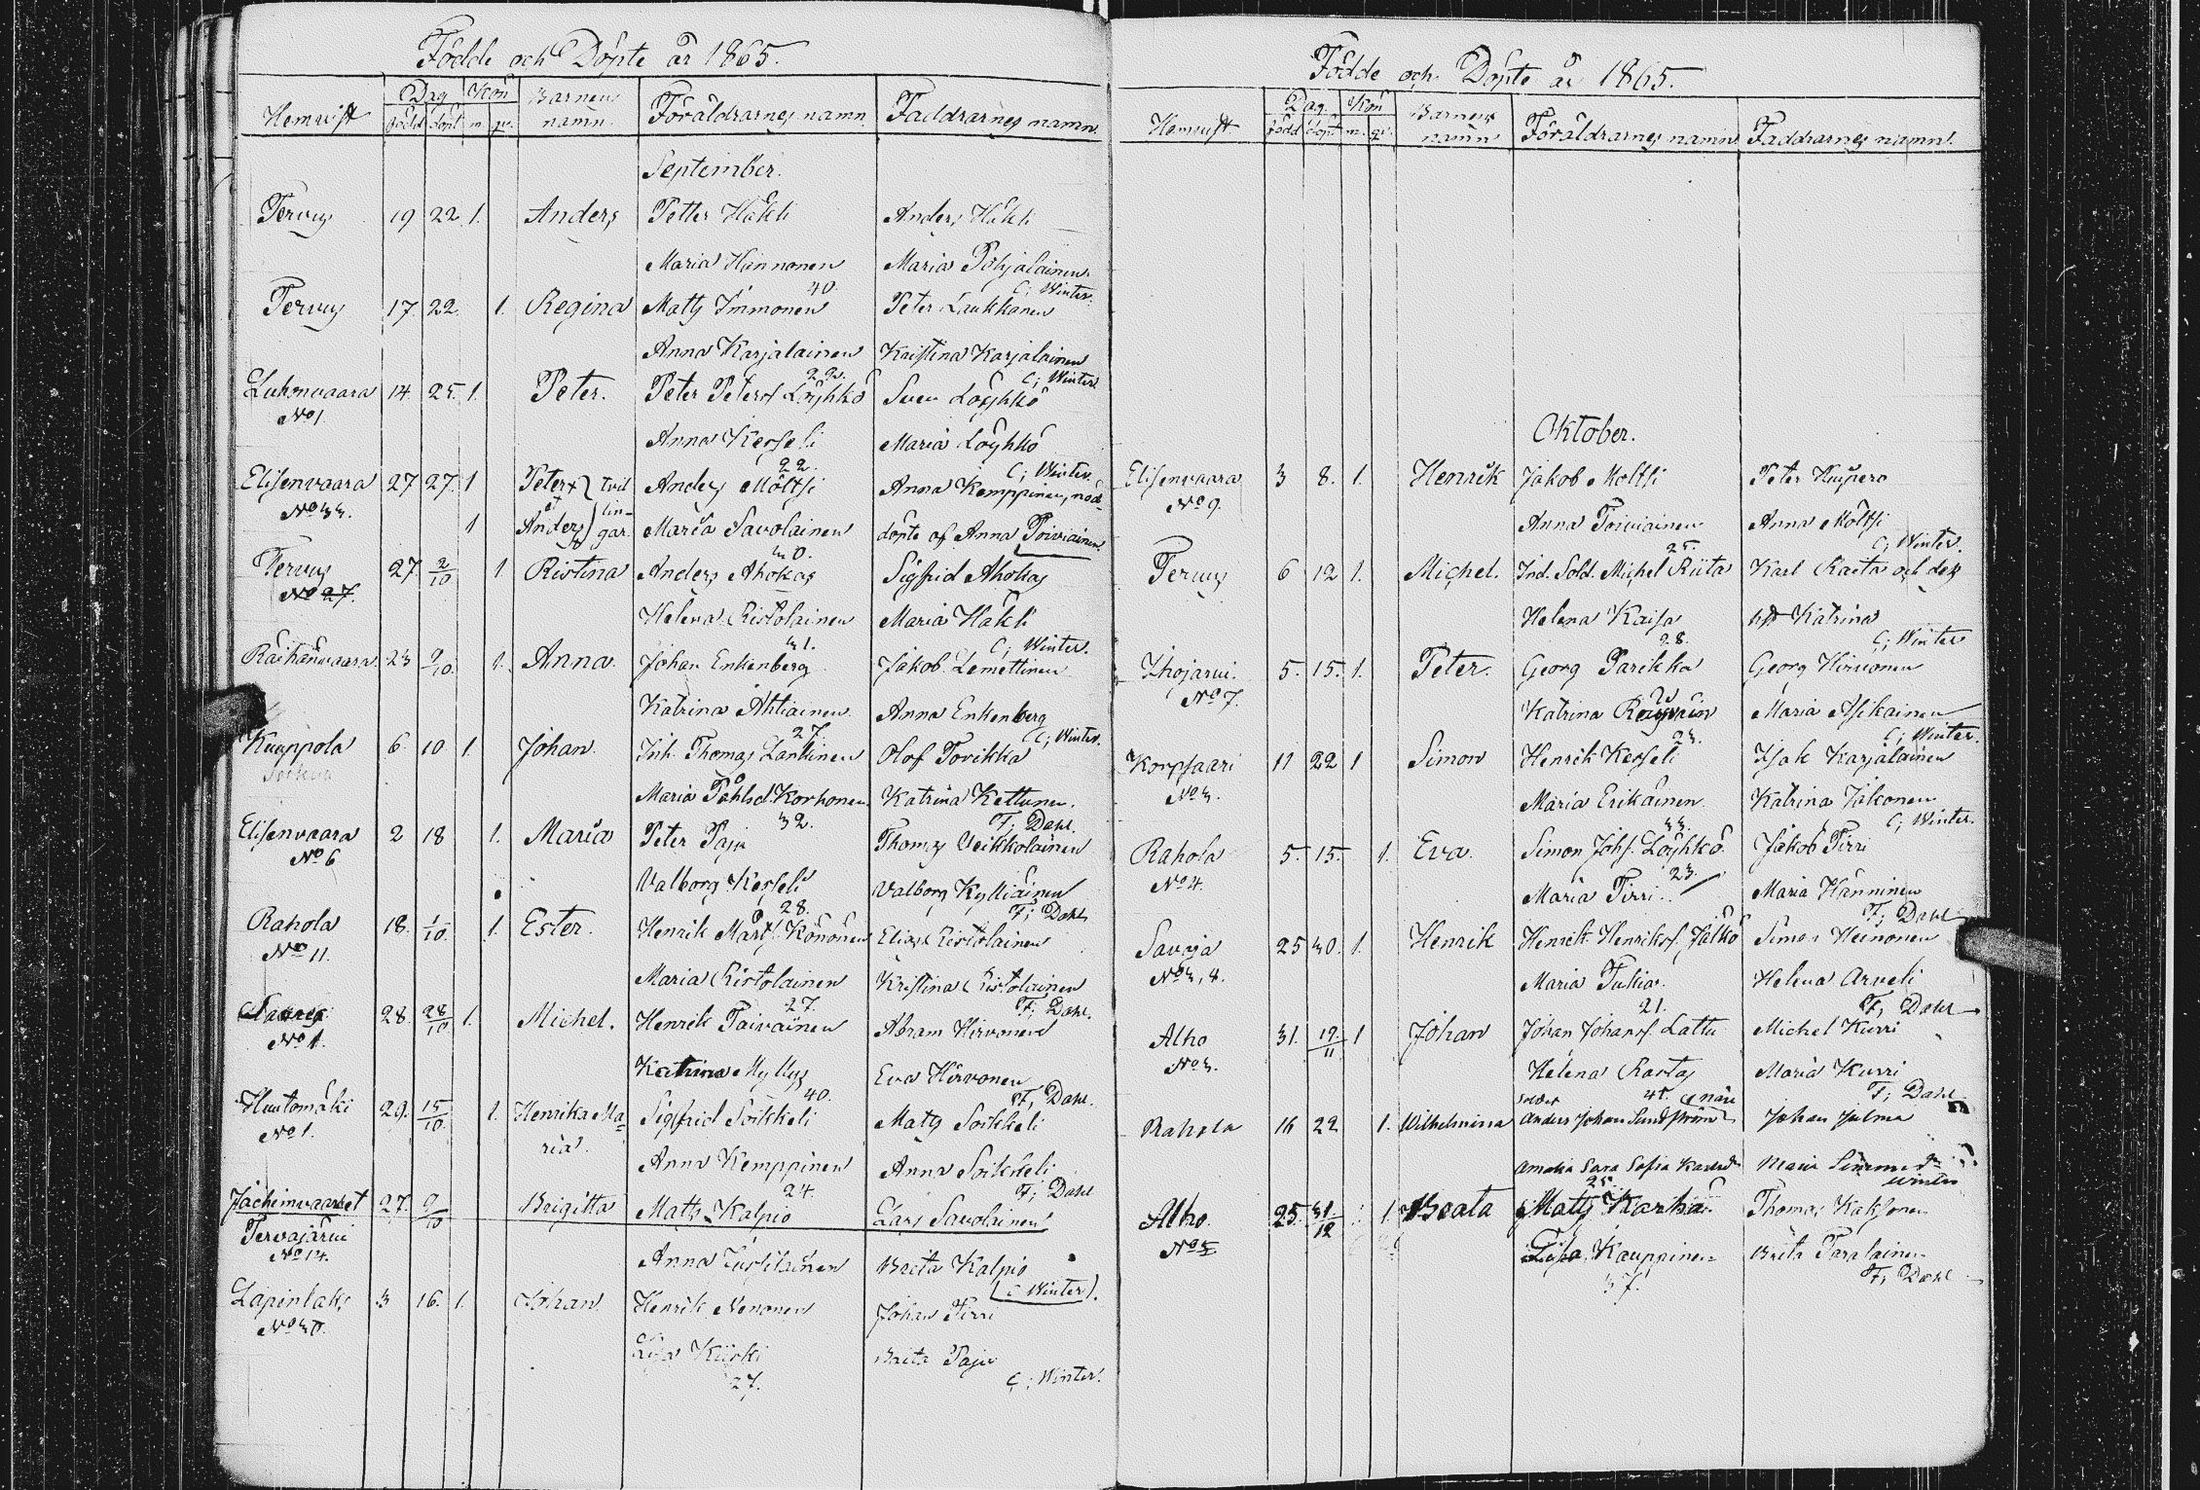 Födde och Döpte år 1865.
Hemvist Dag Kön Barnens namn Föräldrarnes namn Faddrarnes namn.
född döpt m. qv.
September.
Tervus 19 22 1. Anders Petter Häkli Anders Häkli
Maria Hannonen Maria Pohjalainen
40. C; Winter.
Tervus 17. 22. 1. Regina Matts Immonen Peter Laukkanen
Anna Karjalainen Kristina Karjalainen
22. C; Winter.
Luhonvaara 14 25. 1. Peter. Peter Peters Löyhkö Sven Löyhkö
No 1. Anna Kesseli Maria Löyhkö
22. C; Winter.
Elisenvaara 27 27. 1 Peter + tvil Anders Möltsi Anna Kemppinen, nöd-
No 33. 1 et Anders lin-gar. Maria Savolainen döpte af Anna Toiviainen.
30.
Tervus 27. 2/10 1. Ristina Anders Ahokas Sigfrid Ahokas
No 27. Helena Ristolainen Maria Häkli
31. C; Winter.
Räihänvaara 23 9/10. 1. Anna. Johan Enkenberg Jakob Lemettinen
Katrina Ahtiainen Anna Enkenberg
27. C; Winter.
Kuuppola 6. 10 1. Johan. Inh. Thomas Lankinen Olof Torikka
Maria Påhlsd. Korhonen Katrina Kettunen.
32. F; Dahl.
Elisenvaara 2 18 1. Maria Peter Paju Thomas Veikkolainen
No 6 Valborg Kesseli Valborg Kylliäinen
28. F; Dahl
Rahola 18. 1/10. 1. Ester. Henrik Mårts. Könönen Elias Ristolainen
No 11. Maria Ristolainen Kristina Ristolainen
27. F; Dahl.
28. 28/10 1. Michel. Henrik Toivainen Abram Hirvonen
No 1. Katrina Myllys Eva Hirvonen
40. F; Dahl.
Huutomäki 29. 15/10. 1. Henrika Ma= Sigfrid Soikkeli Matts Soikkeli
No 1. ria. Anna Kemppinen Anna Soikkeli
24. F; Dahl
27. 9/10 Brigitta Matts Kalpio Lars Savolainen
Tervajärvi
No 14. Anna Brita Kalpio
(C Winter).
Lapinlaks 3 16. 1. Johan Henrik Nenonen Johan Tirri
No 30. Lisa Kiiski Brita Paju
27. C; Winter.
Födde och Döpte år 1865.
Hemvist Dag. Kön Barnens namn Föräldrarnes namn Faddrarnes namn.
född döpt m. qv.
Oktober.
Elisenvaara 3 8. 1. Henrik Jakob Moltsi Peter
No 9. Anna Toiviainen Anna Möltsi
25. C; Winter.
Tervus 6 12 1. Michel. Ind. Sold. Michel Riita Karl Rasta och dess
Helena Kaisa hst Katrina
28. C; Winter
Ihojärvi. 5. 15. 1. Peter. Georg Parikka Georg Hirvonen
No 7. Katrina Maria Asikainen
23. C; Winter.
Korpsaari 11 22 1 Simon Henrik Kesseli Isak Karjalainen
No 3. Maria Erikäinen Katrina Jakonen
33. C; Winter.
Rahola 5. 15. 1. Eva. Simon Johs. Löyhkö. Jakob Tirri
No 4. Maria Tirri. 23. Maria Hänninen
F; Dahl
Savoja 25 30. 1. Henrik Henrik Henriks. Jälkö Simon Heinonen
No 3, 8. Maria Tukia. Helena Arveli
21. F; Dahl
Alho 31. 19./11 1 Johan Johan Johans. Lattu Michel Kurri
No 3. Helena Rastas Maria Kurri
45. F; Dahl
Rahola 16 22 1. Wilhelmina Anders Johan Sundström Johan Julma
Amalia Sara Sofia Karlsd. Maria
25. Winter
Alho. 25. 31./12 1. Beata Matts Karhu Thomas Kaksonen
No 5 Lisa Kauppinen Brita
37. F; Dahl